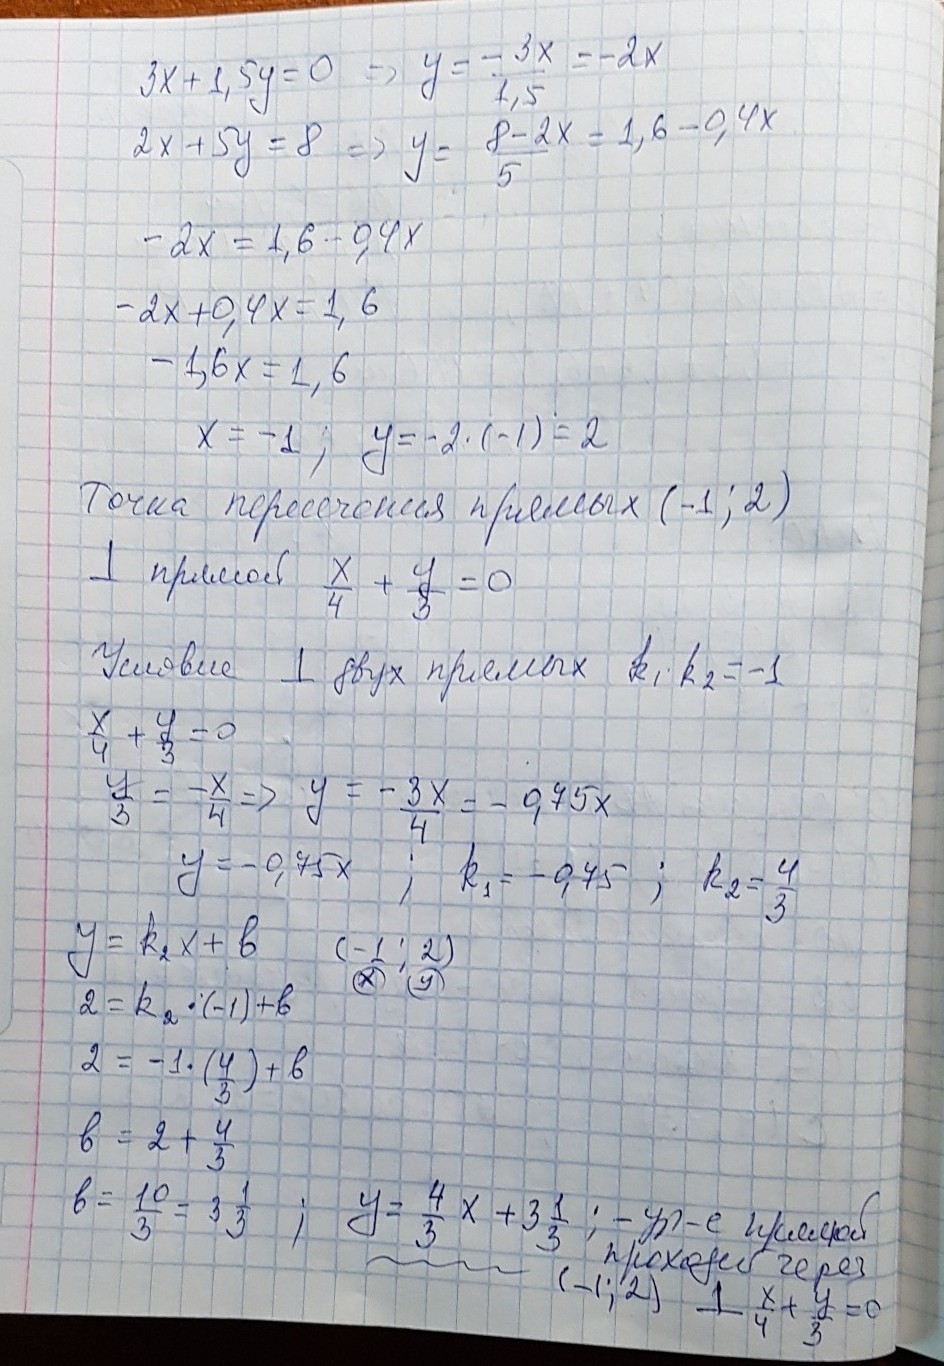 3x+1,5y=0 => y = -3x/1,5 = -2x
2x+5y=8 => y= 8-2x/5 = 1,6-0,4x
-2x = 1,6-0,4x
-2x+0,4x=1,6
-1,6x=1,6
x = -1; y=-2·(-1)=2
Точка пересечения прямых (-1; 2)
⊥ прямой x/4 + y/3 = 0
Условие ⊥ двух прямых k₁·k₂=-1
x/4 + y/3 = 0
y/3 = -x/4 => y = -3x/4 = -0,75x
y=-0,75x ; k₁=-0,75 ; k₂=4/3
y= k₂x+в (-1; 2)
(x) (y)
2=k₂·(-1)+в
2 = -1·(4/3)+в
в = 2+4/3
в= 10/3 = 3 1/3 ; y= 4/3 x + 3 1/3 ; - ур-е прямой
проходящей через
(-1; 2) ⊥ x/4 + y/3 = 0